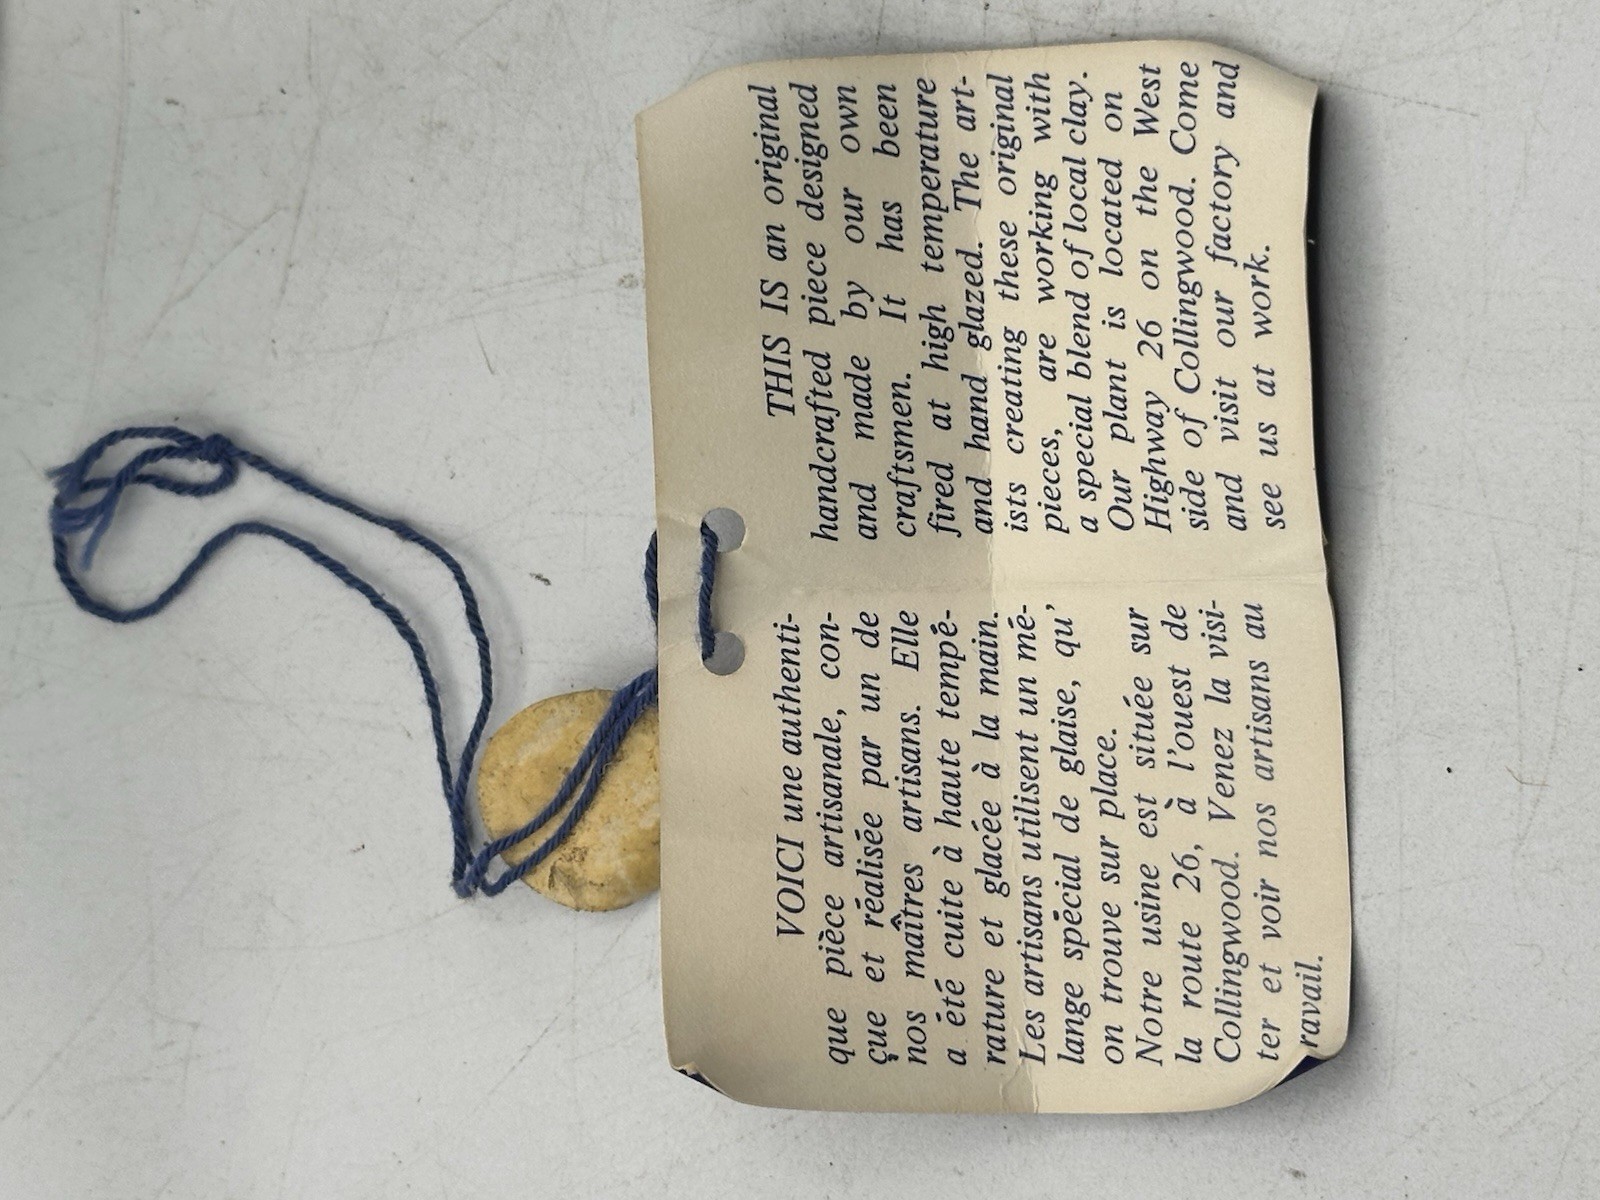 VOICI une authenti-
que pièce artisanale, con-
çue et réalisée par un de
nos maîtres artisans. Elle
a été cuite à haute tempé-
rature et glacée à la main.
Les artisans utilisent un mé-
lange spécial de glaise, qu'
on trouve sur place.
Notre usine est située sur
la route 26, à l'ouest de
Collingwood. Venez la visi-
ter et voir nos artisans au
ravail.
THIS IS an original
handcrafted piece designed
and made by our own
craftsmen. It has been
fired at high temperature
and hand glazed. The art-
ists creating these original
pieces, are working with
a special blend of local clay.
Our plant is located on
Highway 26 on the West
side of Collingwood. Come
and visit our factory and
see us at work.